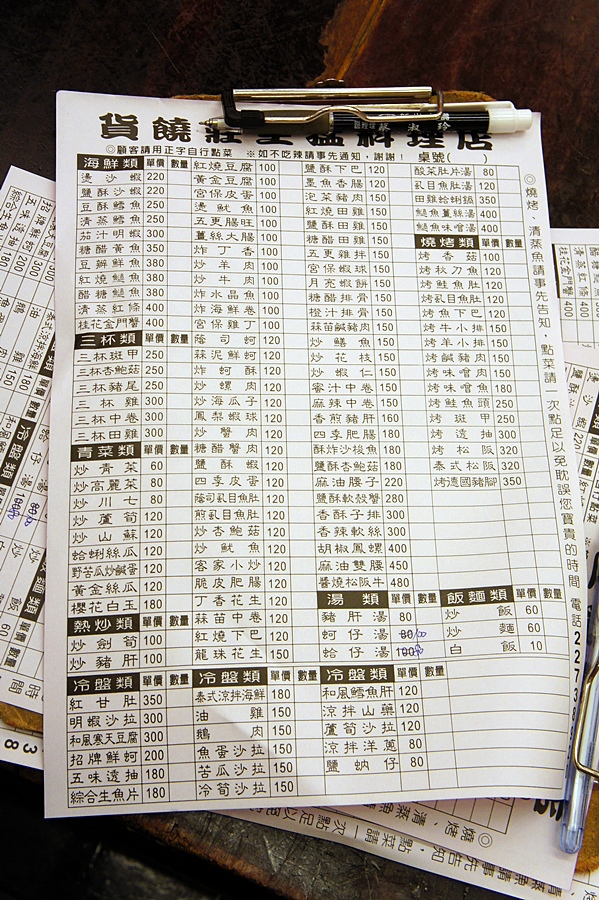 貨饒莊生猛料理店
◎顧客請用正字自行點菜 ※如不吃辣請事先通知，謝謝！ 桌號( )
海鮮類 單價 數量
燙沙蝦 220
鹽酥沙蝦 220
豆酥鱈魚 250
清蒸鱈魚 250
茄汁明蝦 300
糖醋黃魚 350
豆瓣鮮魚 380
紅燒鰱魚 380
醋糖鰱魚 380
清蒸紅條 400
桂花金門蟹 400
三杯類 單價 數量
三杯斑甲 250
三杯杏鮑菇 250
三杯豬尾 250
三杯雞 300
三杯中卷 300
三杯田雞 300
青菜類 單價 數量
炒青菜 60
炒高麗菜 80
炒川七 80
炒蘆筍 120
炒山蘇 120
蛤蜊絲瓜 120
野苦瓜炒鹹蛋 120
黃金絲瓜 120
櫻花白玉 180
熱炒類 單價 數量
炒劍筍 100
炒豬肝 100
紅燒豆腐 100
黃金豆腐 100
宮保皮蛋 100
燙魷魚 100
五更腸旺 100
薑絲大腸 100
炸丁香 100
炒羊肉 100
炒牛肉 100
炸水晶魚 100
炸海鮮卷 100
宮保雞丁 100
蔭司蚵 120
蒜泥鮮蚵 120
炸蚵酥 120
炒螺肉 120
炒海瓜子 120
鳳梨蝦球 120
炒蟹肉 120
糖醋蟹肉 120
鹽酥蝦 120
四季皮蛋 120
蔭司虱目魚肚 120
煎虱目魚肚 120
炒杏鮑菇 120
炒魷魚 120
客家小炒 120
脆皮肥腸 120
丁香花生 120
蒜苗中卷 120
紅燒下巴 120
龍珠花生 150
鹽酥下巴 120
墨魚香腸 120
泡菜豬肉 150
紅燒田雞 150
鹽酥田雞 150
糖醋田雞 150
五更雞拌 150
宮保蝦球 150
月亮蝦餅 150
糖醋排骨 150
橙汁排骨 150
蒜苗鹹豬肉 150
炒鱔魚 150
炒花枝 150
炒蝦仁 150
蜜汁中卷 150
麻辣中卷 150
香煎豬肝 160
四季肥腸 180
酥炸沙梭魚 180
鹽酥杏鮑菇 180
麻油腰子 220
鹽酥軟殼蟹 280
香酥子排 300
香辣軟絲 300
胡椒鳳螺 400
麻油雙腰 450
醬燒松阪牛 480
酸菜肚片湯 80
虱目魚肚湯 120
田雞蛤蜊鍋 350
鰱魚薑絲湯 400
鰱魚味噌湯 400
燒烤類 單價 數量
烤香菇 100
烤秋刀魚 120
烤鮭魚肚 120
烤虱目魚肚 120
烤魚下巴 120
烤牛小排 150
烤羊小排 150
烤鹹豬肉 150
烤味噌肉 150
烤味噌魚 180
烤鮭魚頭 250
烤斑甲 250
烤透抽 300
烤松阪 320
泰式松阪 320
烤德國豬腳 350
湯類 單價 數量
豬肝湯 80
蚵仔湯 80
蛤仔湯 100
飯麵類 單價 數量
炒飯 60
炒麵 60
白飯 10
冷盤類 單價 數量
紅甘肚 350
明蝦沙拉 300
和風寒天豆腐 300
招牌鮮蚵 200
五味透抽 180
綜合生魚片 180
冷盤類 單價 數量
泰式涼拌海鮮 180
油雞 150
鵝肉 150
魚蛋沙拉 150
苦瓜沙拉 150
冷筍沙拉 150
冷盤類 單價 數量
和風鱈魚肝 120
涼拌山藥 120
蘆筍沙拉 120
涼拌洋蔥 80
鹽蚋仔 80
◎燒烤、清蒸魚請事先告知，點菜請一次點足以免耽誤您寶貴的時間 電話